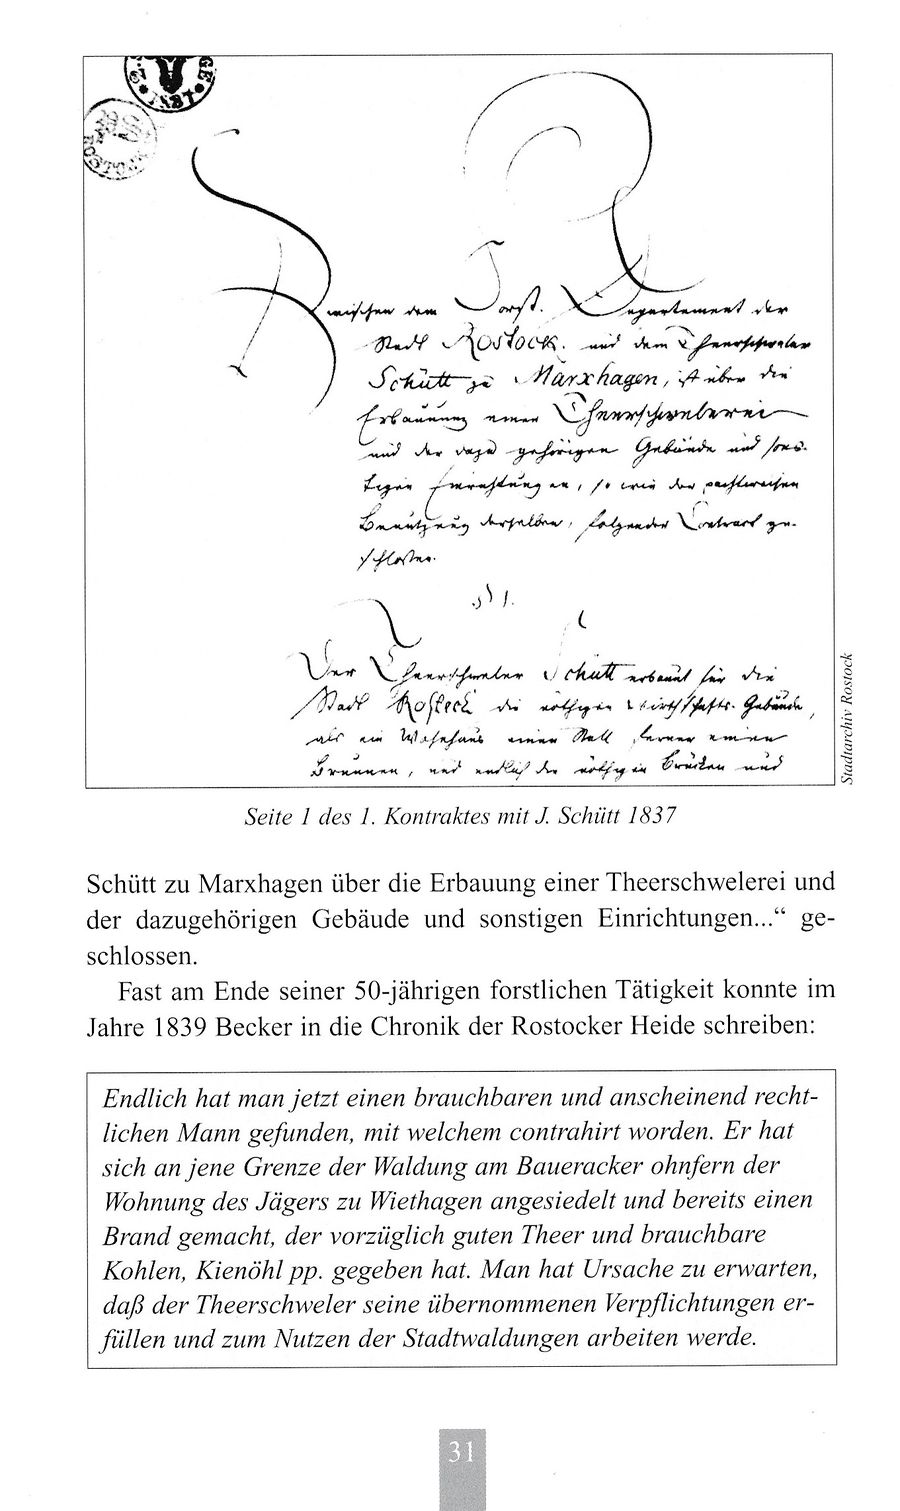 1837
Zwischen dem Forst-Departement der
Stadt Rostock und dem Theerschweler
Schütt zu Marxhagen, ist über die
Erbauung einer Theerschwelerei
und der dazu gehörigen Gebäude und sons-
tigen Einrichtungen, so wie der pachtweisen
Benutzung derselben, folgender Contract ge-
schlossen.
§ 1.
Der Theerschweler Schütt erbauet für die
Stadt Rostock die nöthigen Wirthschafts-Gebäude,
als ein Wohnhaus einen Stall, ferner einen
Brunnen, und endlich die nöthigen Brücken und
Stadtarchiv Rostock
Seite 1 des 1. Kontraktes mit J. Schütt 1837
Schütt zu Marxhagen über die Erbauung einer Theerschwelerei und
der dazugehörigen Gebäude und sonstigen Einrichtungen...“ ge-
schlossen.
Fast am Ende seiner 50-jährigen forstlichen Tätigkeit konnte im
Jahre 1839 Becker in die Chronik der Rostocker Heide schreiben:
Endlich hat man jetzt einen brauchbaren und anscheinend recht-
lichen Mann gefunden, mit welchem contrahirt worden. Er hat
sich an jene Grenze der Waldung am Baueracker ohnfern der
Wohnung des Jägers zu Wiethagen angesiedelt und bereits einen
Brand gemacht, der vorzüglich guten Theer und brauchbare
Kohlen, Kienöhl pp. gegeben hat. Man hat Ursache zu erwarten,
daß der Theerschweler seine übernommenen Verpflichtungen er-
füllen und zum Nutzen der Stadtwaldungen arbeiten werde.
31